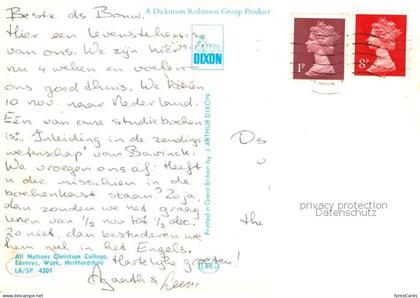 A Dickinson Robinson Group Product
Beste ds Bouw.
Hier een levensteken
van ons. We zijn hier
nu 4 weken en voelen
ons goed thuis. We komen
10 nov. naar Nederland.
Eén van onze studieboeken
is: "Inleiding in de zendings-
wetenschap" van Bavinck.
We vroegen ons af: Heeft
u die misschien in de
boekenkast staan? Zo ja,
dan zouden we het graag
lenen van 1/2 nov tot 1/2 dec.
Zo niet, dan bestuderen we
hem wel in het Engels.
Hartelijke groeten!
Agaath &
All Nations Christian College,
Easneye, Ware, Hertfordshire
L6/SP. 4201
DIXON
Printed in Great Britain by J. ARTHUR DIXON
1P
8P
Ds
the
privacy protection
Datenschutz
forteCards